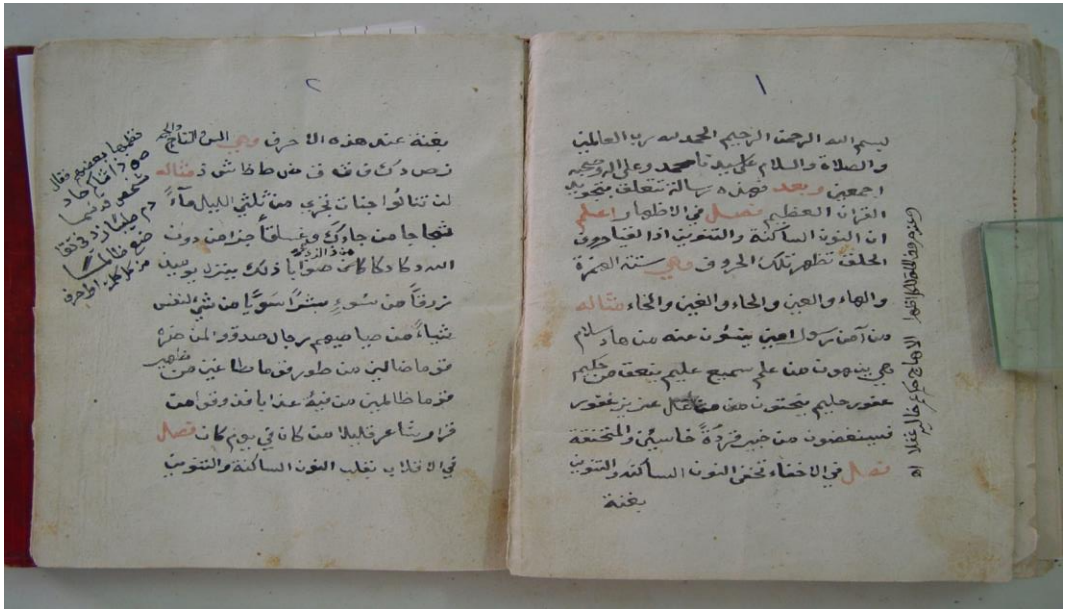 ١
بسم الله الرحمن الرحيم الحمد لله رب العالمين
والصلاة والسلام على سيدنا محمد وعلى اله وصحبه
اجمعين وبعد فهذه رسالة تتعلق بتجويد
القران العظيم فصل في الاظهار اعلم
ان النون الساكنة والتنوين اذا لقيا حروف
الحلق تظهر تلك الحروف وهي ستة الهمزة
والهاء والعين والحاء والغين والخاء مثاله
من آمن رسول امين ينئون عنه من هاد سلام
هي ينهون من علم سميع عليم ينعق من حكيم
غفور حليم ينحتون من غل عزيز غفور
فسينغضون من خير قردة خاسئين والمنخنقة
فصل في الاخفاء تخفى النون الساكنة والتنوين
بغنة
٢
بغنة عند هذه الاحرف وهي التاء والجيم
مثاله
لن تنالوا جنات تجري من ثلثي الليل مآءً
ثجاجا من جاءك جزا من دون
الله دكا دكا كان صوابا ذلك ينزل يومئذ
زرقاً من سوءٍ بشرًا سويًّا من شئ النفس
شياءً من صياصيهم رجال صدقوا لمن ضره
قوما ضالين من طور قوما طاغين من ظهير
قوما ظالمين من فئة عذابا فوقوا من
قرار شاعر قليلا من كان في يوم كان فصل
في الاقلاب تقلب النون الساكنة والتنوين
نظمها بعضهم فقال
صف ذا ثنا كم جاد
شخص قد سما
دم طيبا زد في تقا
ضع ظالما
من كل كلمة